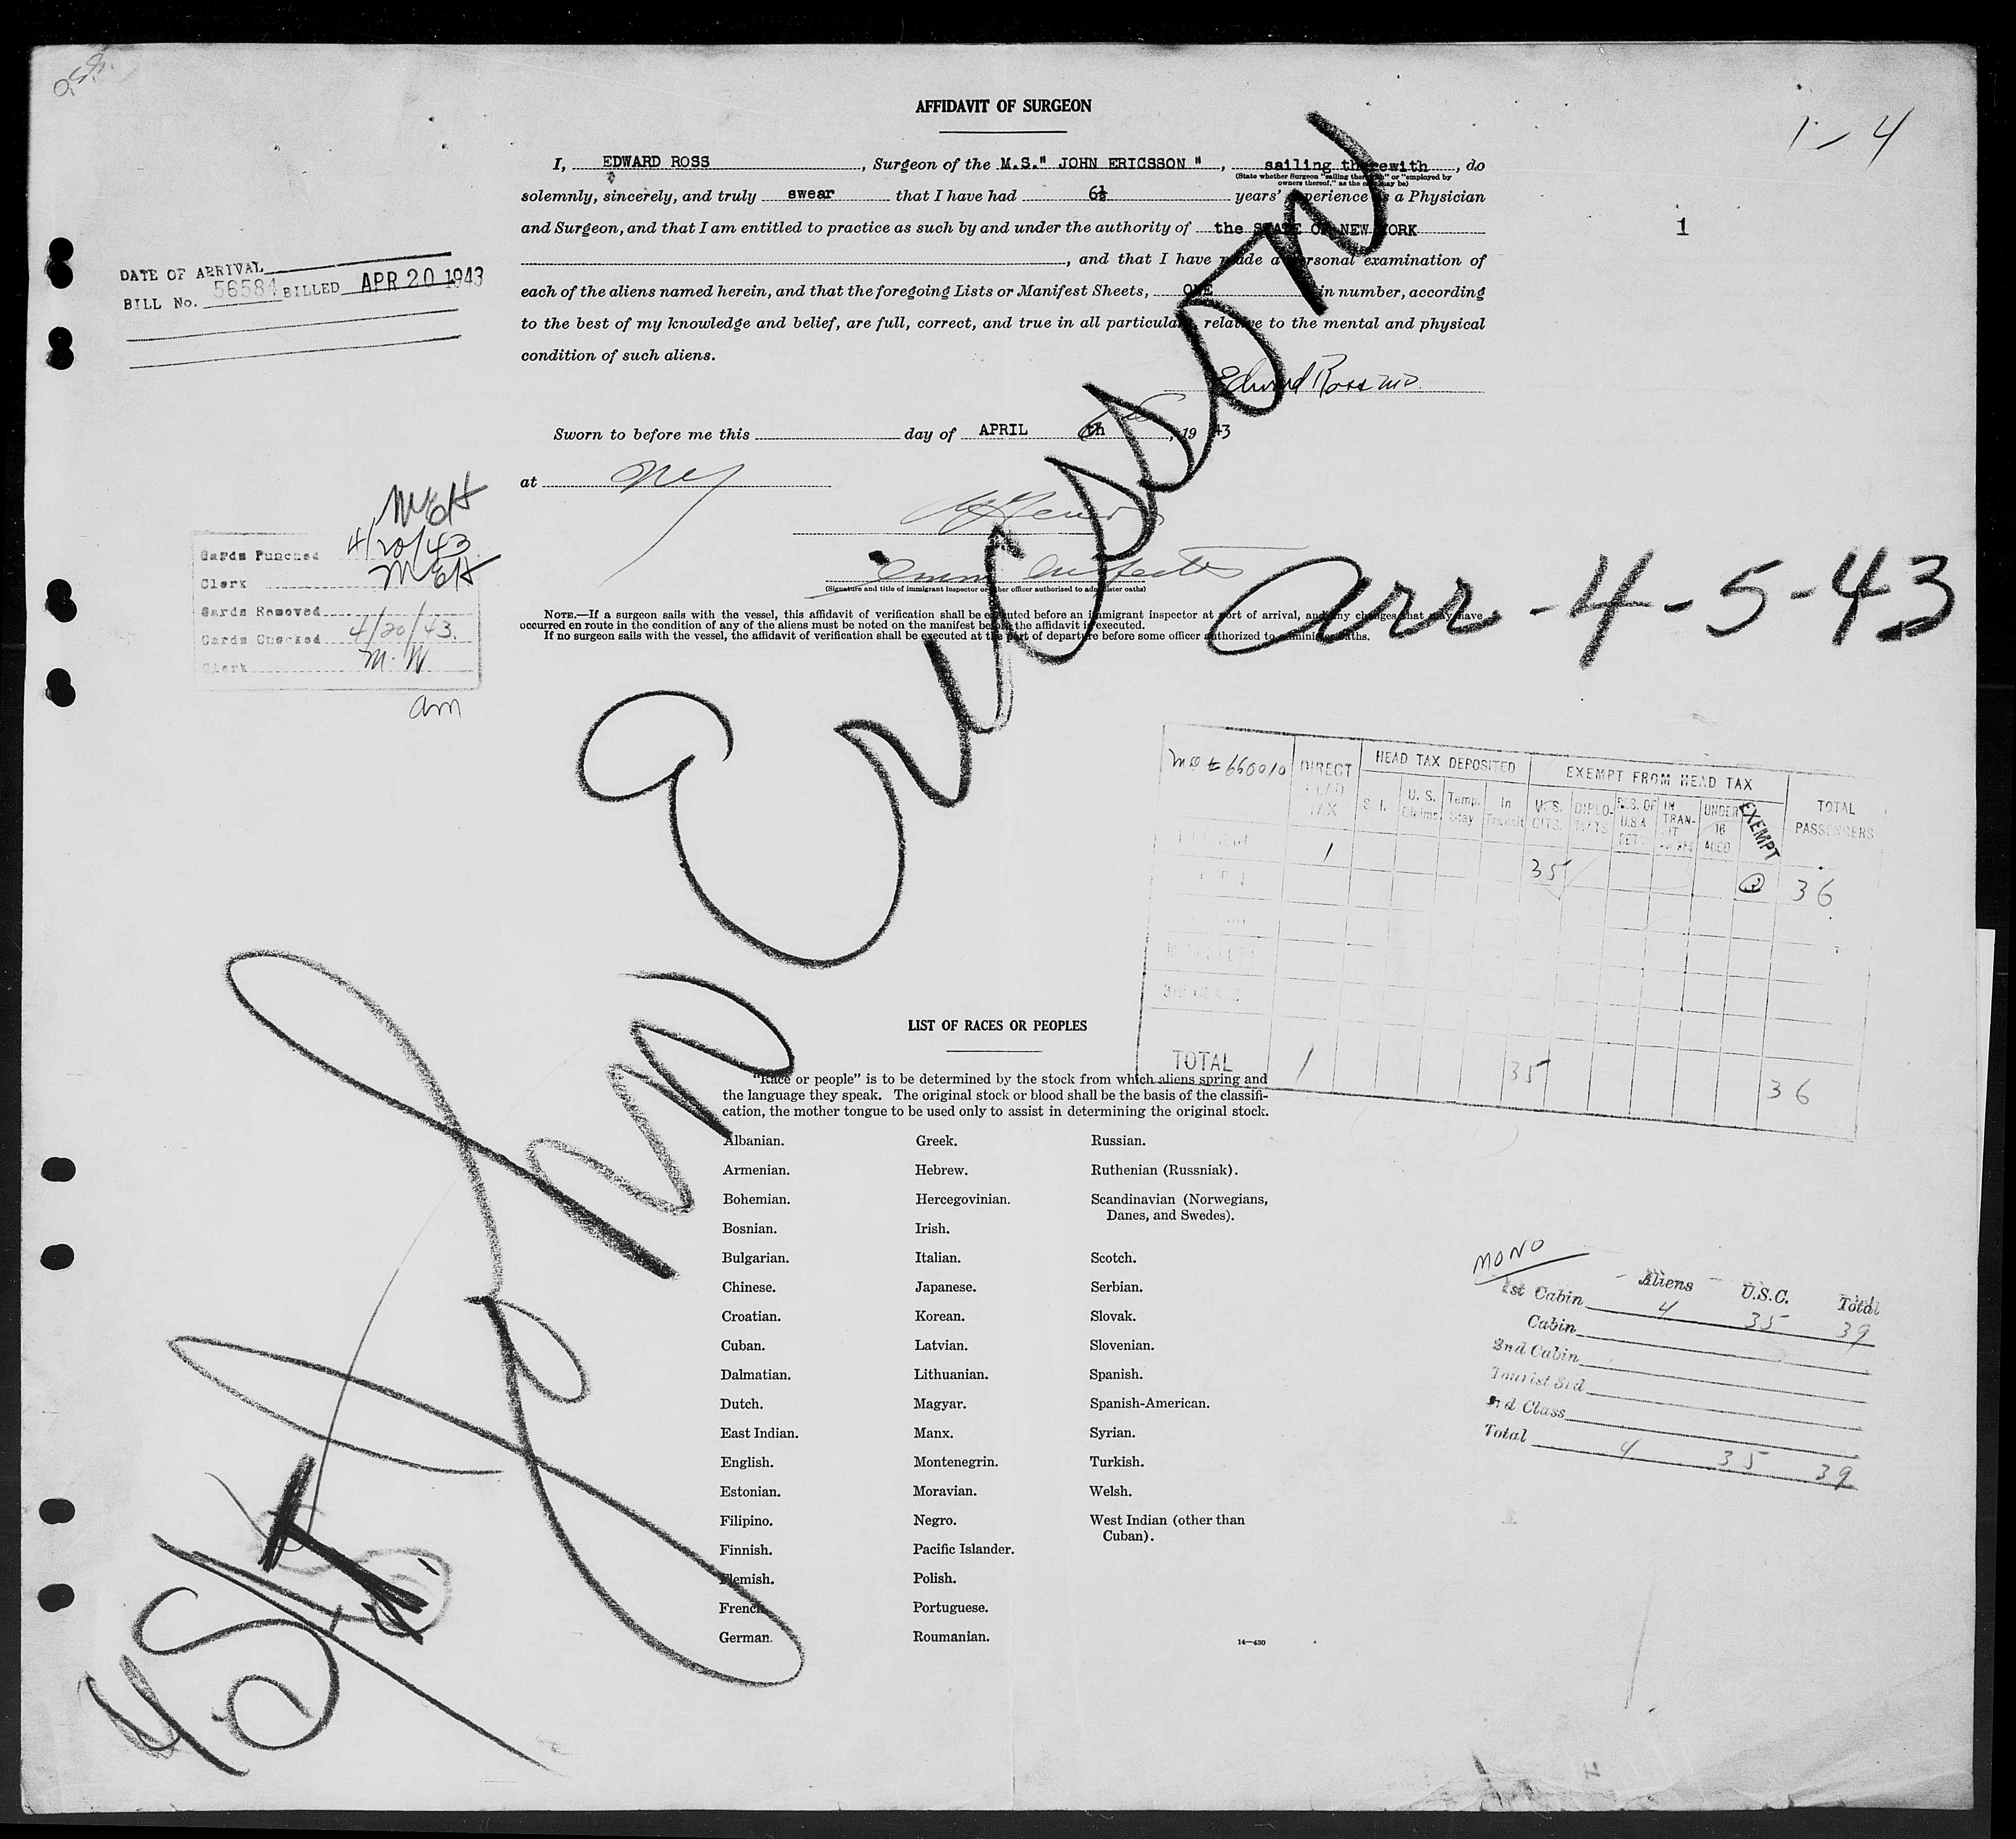 AFFIDAVIT OF SURGEON
1-4
I, EDWARD ROSS, Surgeon of the M.S." JOHN ERICSSON ", sailing therewith, do
(State whether Surgeon "sailing therewith" or "employed by
owners thereof," as the case may be)
solemnly, sincerely, and truly swear that I have had 6½ years' experience as a Physician
and Surgeon, and that I am entitled to practice as such by and under the authority of the STATE OF NEW YORK
1
, and that I have made a personal examination of
each of the aliens named herein, and that the foregoing Lists or Manifest Sheets, ONE in number, according
to the best of my knowledge and belief, are full, correct, and true in all particulars relative to the mental and physical
condition of such aliens.
DATE OF ARRIVAL
BILL No. 56584 BILLED APR 20 1943
Edward Ross MD.
Sworn to before me this day of APRIL th, 1943
at NY
(Signature and title of immigrant inspector or other officer authorized to administer oaths)
NOTE.—If a surgeon sails with the vessel, this affidavit of verification shall be executed before an immigrant inspector at port of arrival, and any changes that may have
occurred en route in the condition of any of the aliens must be noted on the manifest before the affidavit is executed.
If no surgeon sails with the vessel, the affidavit of verification shall be executed at the port of departure before some officer authorized to administer oaths.
MEH
Cards Punched 4/20/43
Clerk MEH
Cards Removed
Cards Checked 4/20/43.
Clerk M.W
am
John Ericsson
arr - 4-5-43
DIRECT HEAD TAX
HEAD TAX DEPOSITED
EXEMPT FROM HEAD TAX
TOTAL PASSENGERS
S. I.
U. S. Claims
Temp. Stay
In Transit
U.S. CITS.
DIPLO-MATS
RES. OF U.S.A. RET.
IN TRAN-SIT
UNDER 16 AGED
EXEMPT
1 35 36
TOTAL 1 35 36
LIST OF RACES OR PEOPLES
"Race or people" is to be determined by the stock from which aliens spring and
the language they speak. The original stock or blood shall be the basis of the classifi-
cation, the mother tongue to be used only to assist in determining the original stock.
Albanian.
Armenian.
Bohemian.
Bosnian.
Bulgarian.
Chinese.
Croatian.
Cuban.
Dalmatian.
Dutch.
East Indian.
English.
Estonian.
Filipino.
Finnish.
Flemish.
French.
German.
Greek.
Hebrew.
Hercegovinian.
Irish.
Italian.
Japanese.
Korean.
Latvian.
Lithuanian.
Magyar.
Manx.
Montenegrin.
Moravian.
Negro.
Pacific Islander.
Polish.
Portuguese.
Roumanian.
Russian.
Ruthenian (Russniak).
Scandinavian (Norwegians,
Danes, and Swedes).
Scotch.
Serbian.
Slovak.
Slovenian.
Spanish.
Spanish-American.
Syrian.
Turkish.
Welsh.
West Indian (other than
Cuban).
14—430
MONO
Aliens U.S.C. Total
1st Cabin 4 35 39
Cabin
2nd Cabin
Tourist 3rd
3rd Class
Total 4 35 39